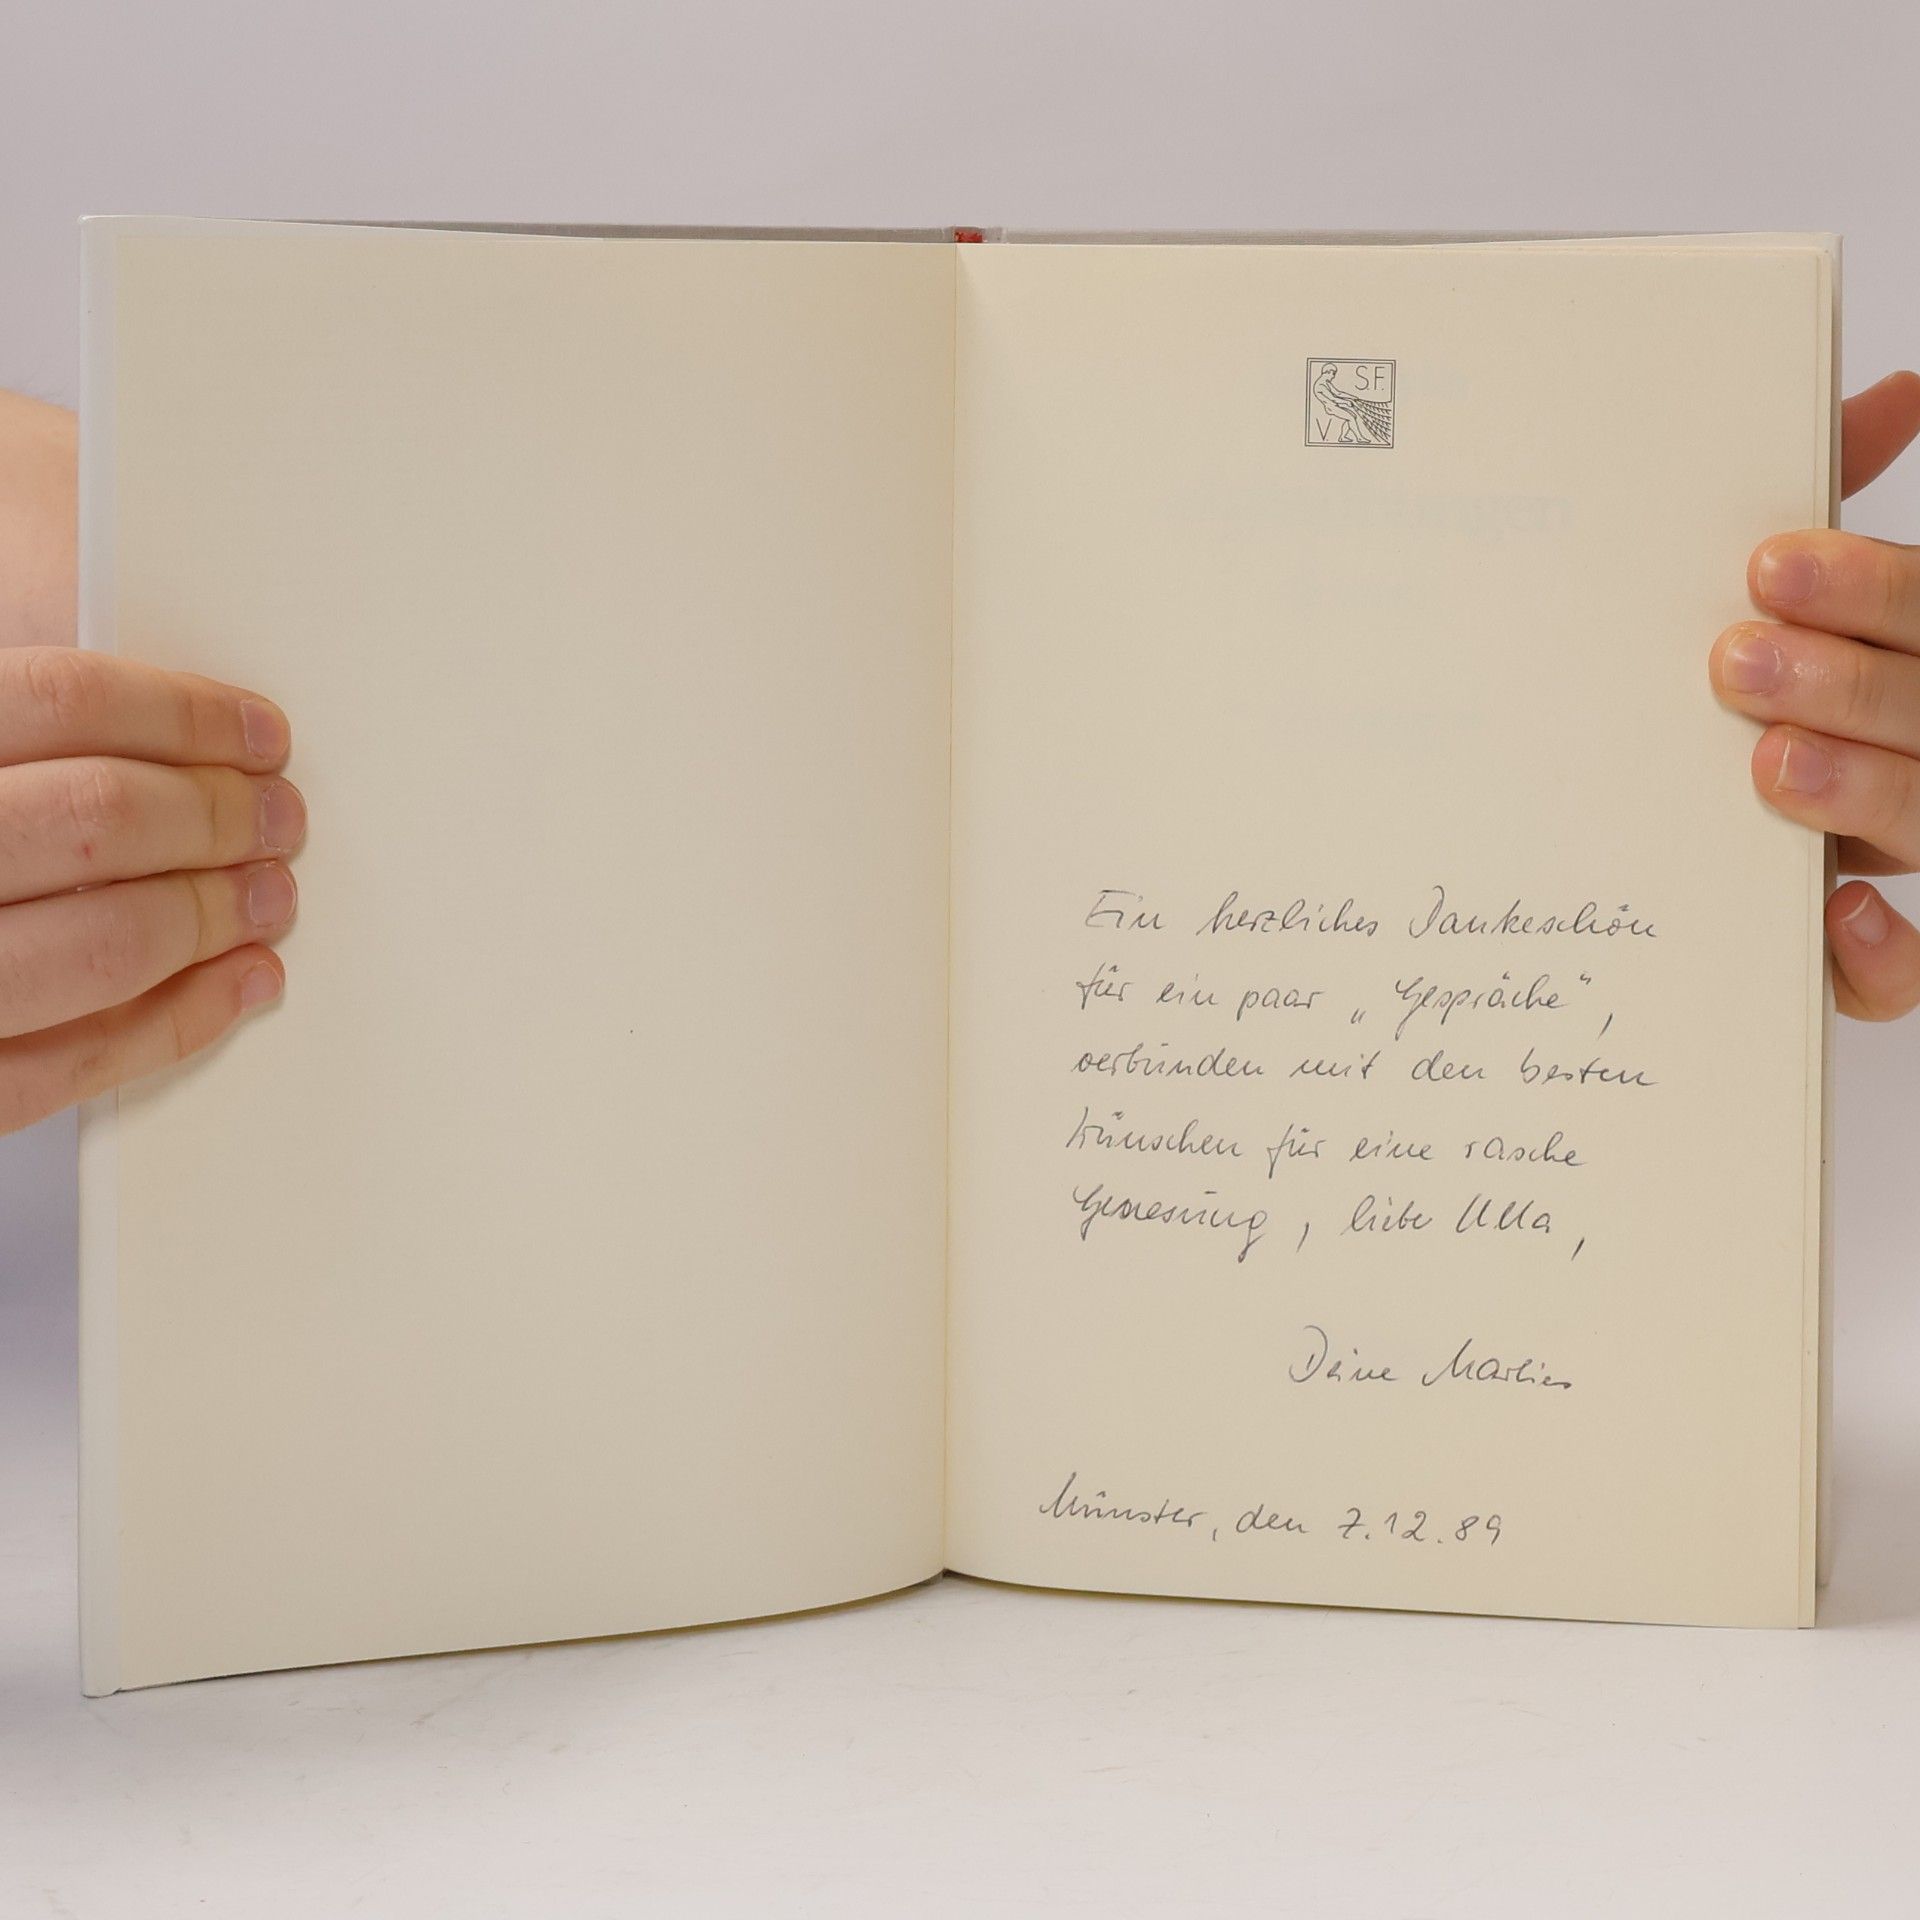 S.F.
V.
Ein herzliches Dankeschön
für ein paar „Gespräche",
verbunden mit den besten
Wünschen für eine rasche
Genesung, liebe Ulla,
Deine Marlies
Münster, den 7.12.89